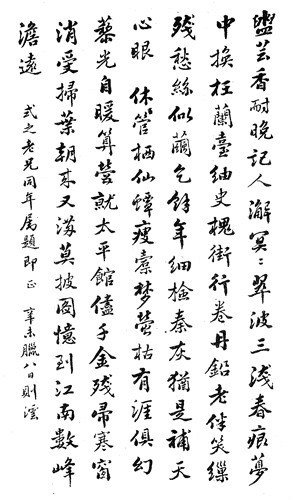 芸香耐晚記人澥冥〻翠波三淺春痕夢
中換枉蘭臺紬史槐街行卷丹鉛老伴笑纏
殘愁絲似繭乞餘年細撿秦灰猶是補天
心眼 休管栖仙蟫瘦囊梦螢枯有涯俱幻
藜光自暖算營就太平館儘千金殘帚寒窗
消受掃葉朝來又滿莫披圖憶到江南數峰
澹遠 式之老兄同年属題即正 辛未臘八日則澐